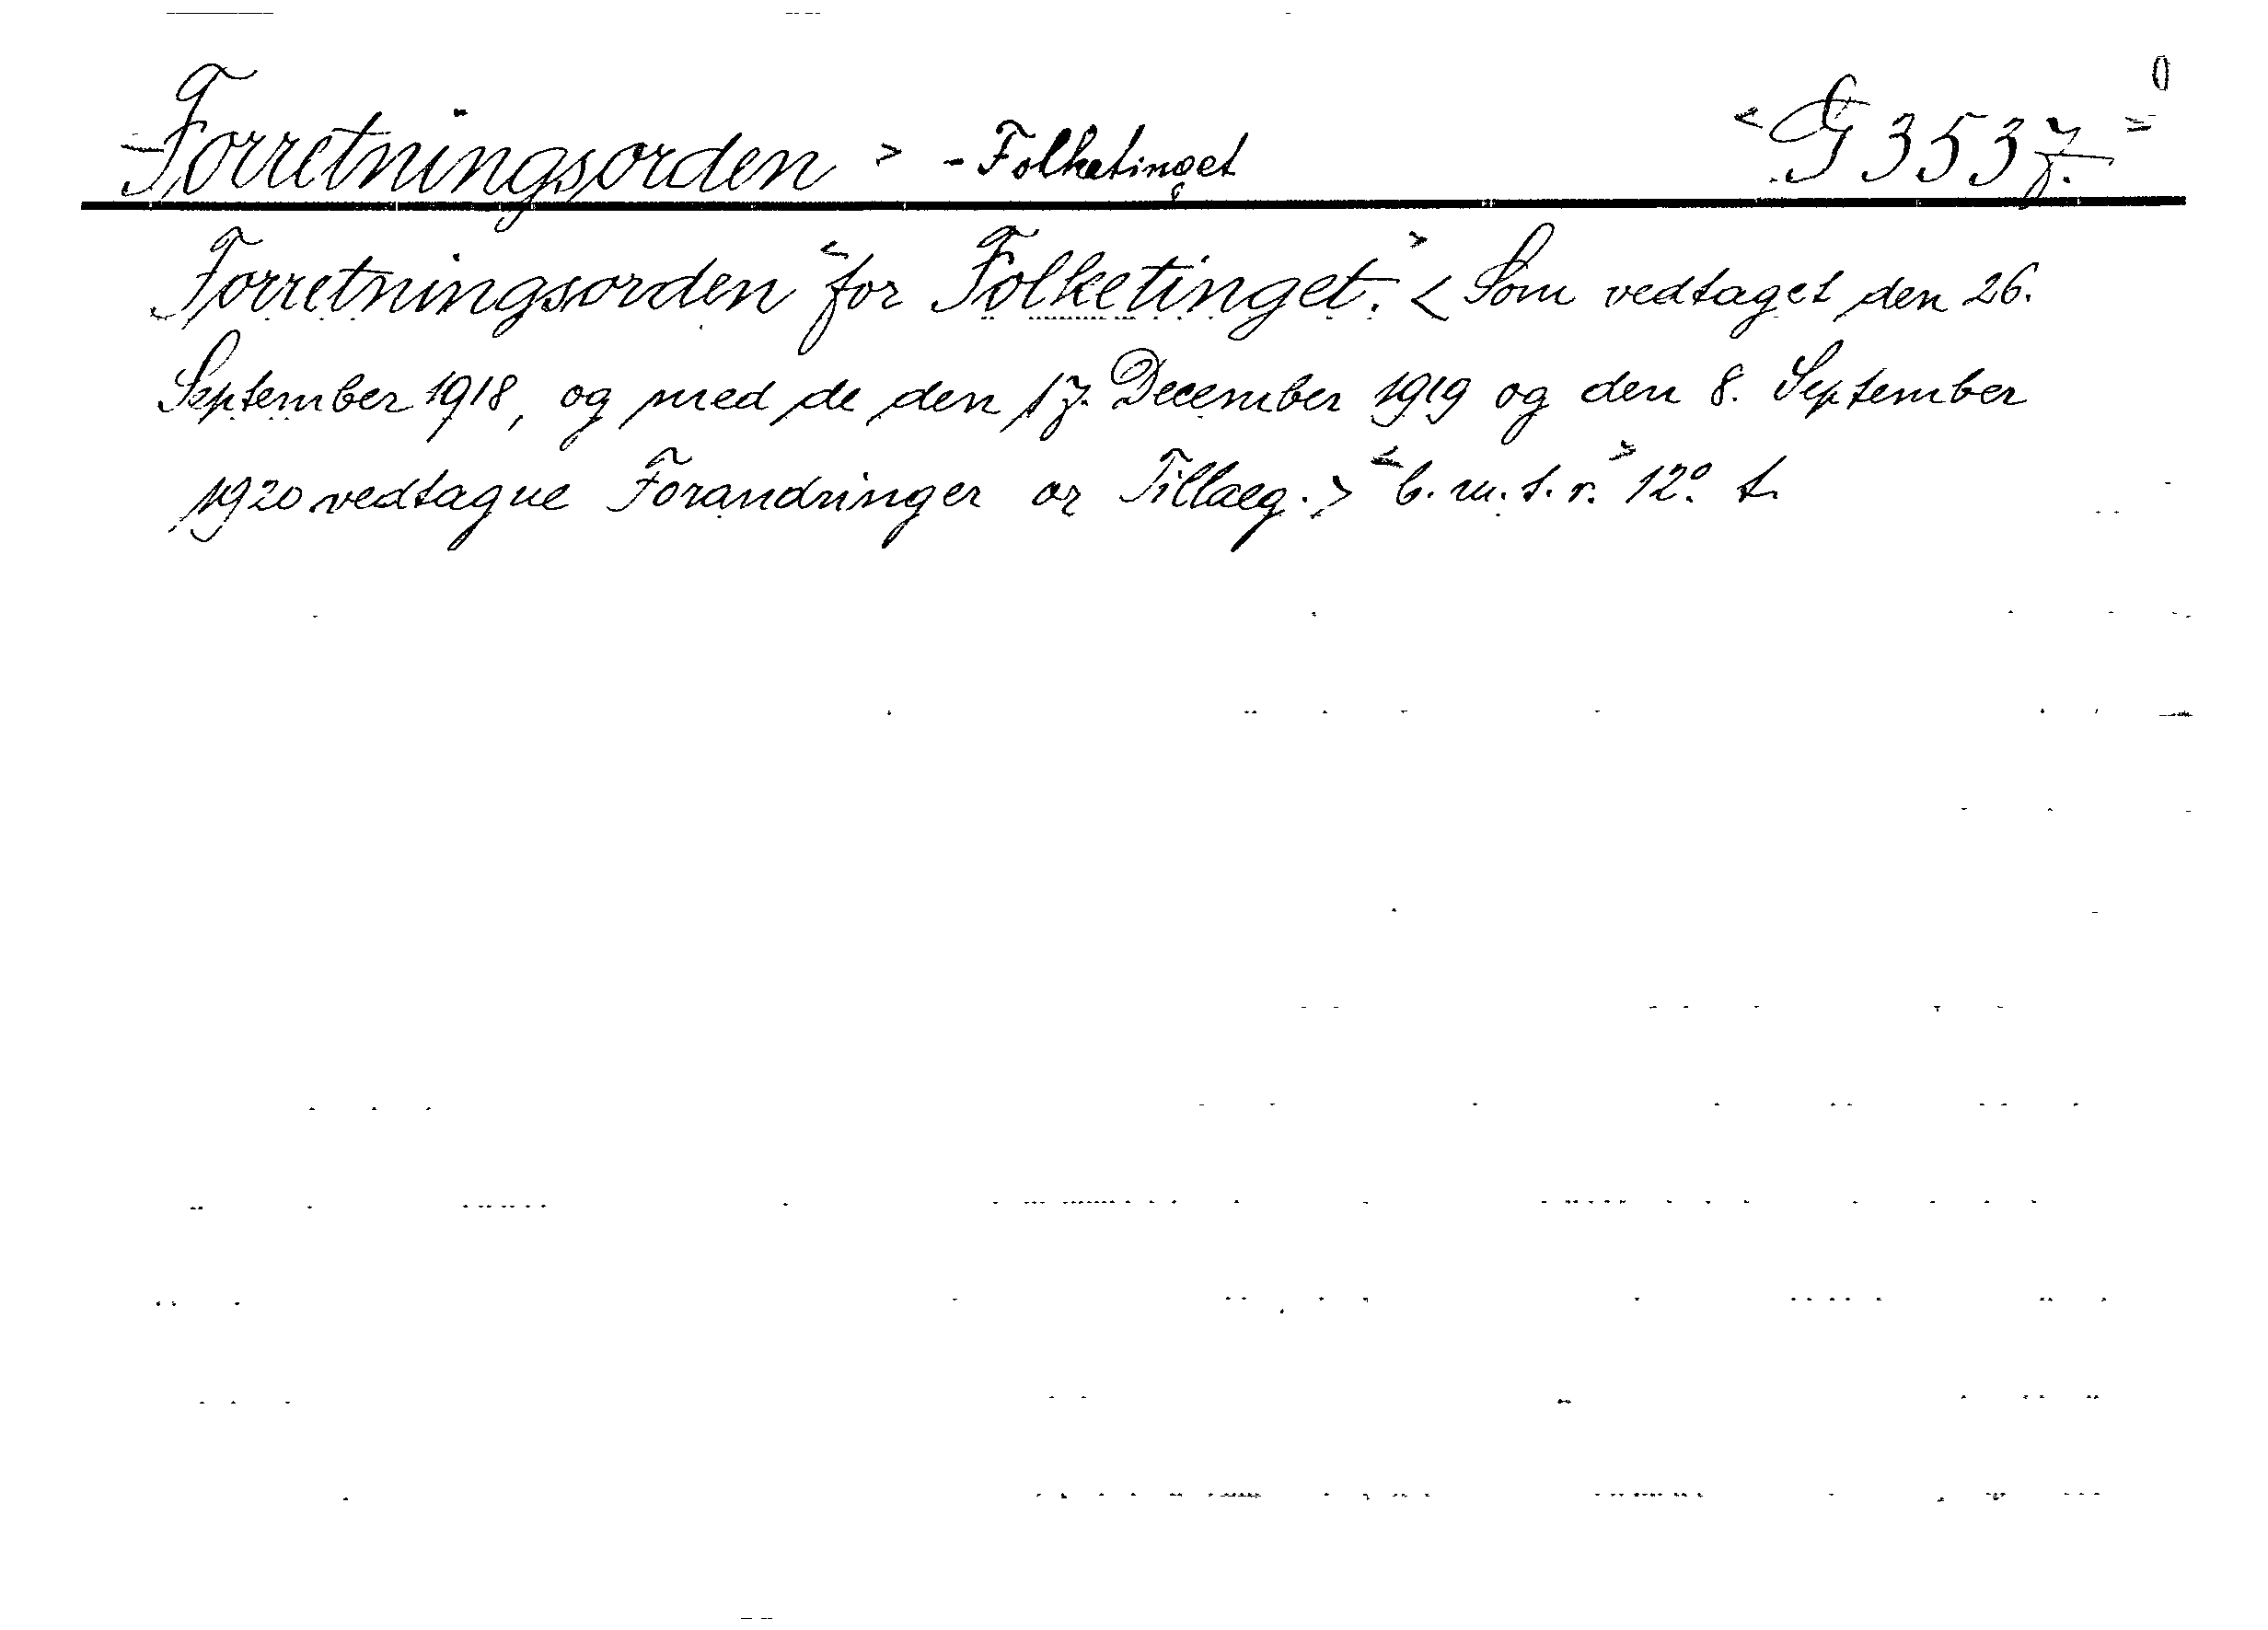 Forretningsorden > - Folketinget < G 3537. = 0
Forretningsorden < for Folketinget. > < Som vedtaget den 26.
September 1918, og med de den 17. December 1919 og den 8. September
1920 vedtagne Forandringer og Tillæg. > < b. m. t. r. > 12º. t.